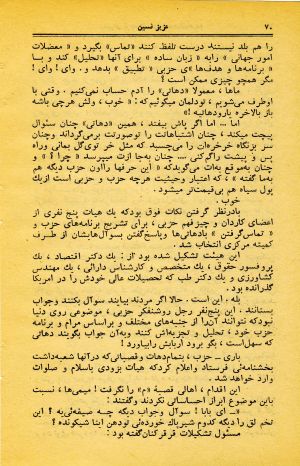 ۷۰ عزیز نسین
را هم بلد نیستند درست تلفظ کنند «تماس» بگیرد و « معضلات
امور جهانی » را به « زبان ساده » برای آنها «تحلیل» کند و با
« برنامه‌ها و هدف‌ها»ی حزبی « تطبیق » بدهد . وای ! وای !
مگر همچو چیزی ممکن است ؟
ماها ، معمولا «دهاتی» را آدم حساب نمی‌کنیم . وقتی با
اوطرف می‌شویم ، تودلمان میگوئیم که : « خوب ، ولش هرچی باشه
باز بالاخره یارودهاتیه »!
اما ... اگر پاش بیفتد ، همین «دهاتی» چنان سئوال
پیچت میکند ، چنان اشتباهاتت را توصورتت برمی‌گرداند وچنان
سر بزنگاه خرخره‌ات را می‌چسبد که مثل خر توی گل بمانی وراه
پس و پیشت را گم کنی ... چنان به‌جا ازت میپرسد « چرا ؟ » و
چنان به‌موقع به‌ات می‌گوید که « این حرفها رااون حزب دیگه هم
به‌ما گفته » ، که اعتبار وحیثیت هرچه حزب و حزبی است ازیك
پول سیاه هم بی‌قیمت‌تر میشود .
خوب .
بادرنظر گرفتن نکات فوق بودکه یك هیات پنج نفری از
اعضای کاردان و چیزفهم حزبی ، برای تشریح برنامه‌های حزب و
« تماس‌گرفتن » بادهاتی‌ها وپاسخ‌گفتن بسوآل‌هایشان از طرف
کمیته مرکزی انتخاب شد .
این هیئت تشکیل شده بود از : یك دکتر اقتصاد ، یك
پروفسور حقوق ، یك متخصص و کارشناس دارائی ، یك مهندس
کشاورزی و یك دکتر طب که تحصیلات عالی خودش را در امریکا
گذرانده بود .
بله ، این است . حالا اگر مردند بیایند سوآل بکنند وجواب
بستانند . این پنج‌نفر رجل روشنفکر حزبی ، موضوعی روی دنیا
نبودکه نتوانند آن‌را از جنبه‌های مختلف و براساس مرام و برنامه
حزب خود ، تحلیل و تجزیه‌اش کنند وبه‌آن جواب بگویند دهاتی
که سهل‌است ، بگو برود اربابش رابیاورد !
باری ـ حزب ، بتمام‌دهات وقصباتی‌که درآنها شعبه‌داشت
بخشنامه‌ئی فرستاد واعلام کردکه هیات بزودی باسلام و صلوات
وارد خواهد شد .
این اقدام ، اهالی قصبه «م» را نگرفت ! میمی‌ها ، نسبت
باین موضوع ابراز احساساتی نکردند وگفتند :
«ـ ای بابا ! سوآل وجواب دیگه چه صیغه‌ئی‌یه ؟ این
تخم لق را دیگه کدوم شیرپاك خورده‌ئی تودهن اینا شیکونده ؟
مسئول تشکیلات قرقرکنان‌گفته بود :